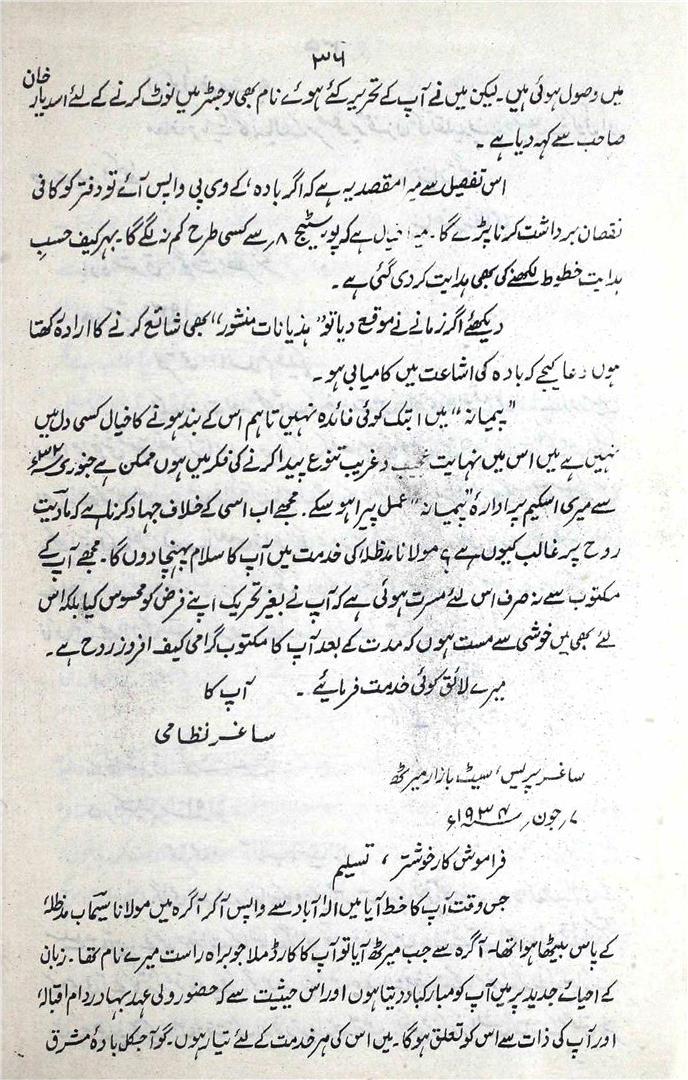 ۳۶
میں وصول ہوئی ہیں۔ لیکن میں نے آپ کے تحریر کئے ہوئے نام بھی رجسٹر میں نوٹ کرنے کے لئے اسد یار خان
صاحب سے کہہ دیا ہے۔
اس تفصیل سے میرا مقصد یہ ہے کہ اگر بادہ، کے وی پی واپس آئے تو دفتر کو کافی
نقصان برداشت کرنا پڑے گا۔ میرا خیال ہے کہ پوسٹیج ۸ر سے کسی طرح کم نہ لگے گا۔ بہر کیف حسبِ
ہدایت خطوط لکھنے کی بھی ہدایت کر دی گئی ہے۔
دیکھئے اگر زمانے نے موقع دیا تو "ہذیانات منشور" بھی شائع کرنے کا ارادہ رکھتا
ہوں دعا کیجے کہ بادہ کی اشاعت میں کامیابی ہو۔
"پیمانہ" میں ابتک کوئی فائدہ نہیں تاہم اس کے بند ہونے کا خیال کسی دل میں
نہیں ہے میں اس میں نہایت عجیب و غریب تنوع پیدا کرنے کی فکر میں ہوں ممکن ہے جنوری ۳۲ء
سے میری اسکیم پر ادارۂ "پیمانہ" عمل پیرا ہو سکے۔ مجھے اب اسی کے خلاف جہاد کرنا ہے کہ مادّیت
روح پر غالب کیوں ہے؟ مولانا مدظلہٗ کی خدمت میں آپ کا سلام پہنچا دوں گا۔ مجھے آپ کے
مکتوب سے نہ صرف اس لئے مسرت ہوئی ہے کہ آپ نے بغیر تحریک اپنے فرض کو محسوس کیا بلکہ اس
لئے بھی میں خوشی سے مست ہوں کہ مدت کے بعد آپ کا مکتوب گرامی کیف افروز روح ہے۔
میرے لائق کوئی خدمت فرمائیے۔ آپ کا
ساغر نظامی
ساغر پریس، سیٹ بازار میرٹھ
۷ر جون ۱۹۳۴ء
فراموش کار خوشتر، تسلیم
جس وقت آپ کا خط آیا میں الہ آباد سے واپس آ کر آگرہ میں مولانا سیماب مدظلہٗ
کے پاس بیٹھا ہوا تھا۔ آگرہ سے جب میرٹھ آیا تو آپ کا کارڈ ملا جو براہ راست میرے نام تھا۔ زبان
کے احیائے جدید پر میں آپ کو مبارکباد دیتا ہوں اور اس حیثیت سے کہ حضور ولی عہد بہادر دام اقبالہٗ
اور آپ کی ذات سے اس کو تعلق ہوگا۔ میں اس کی ہر خدمت کے لئے تیار ہوں۔ گو آجکل بادۂ مشرق